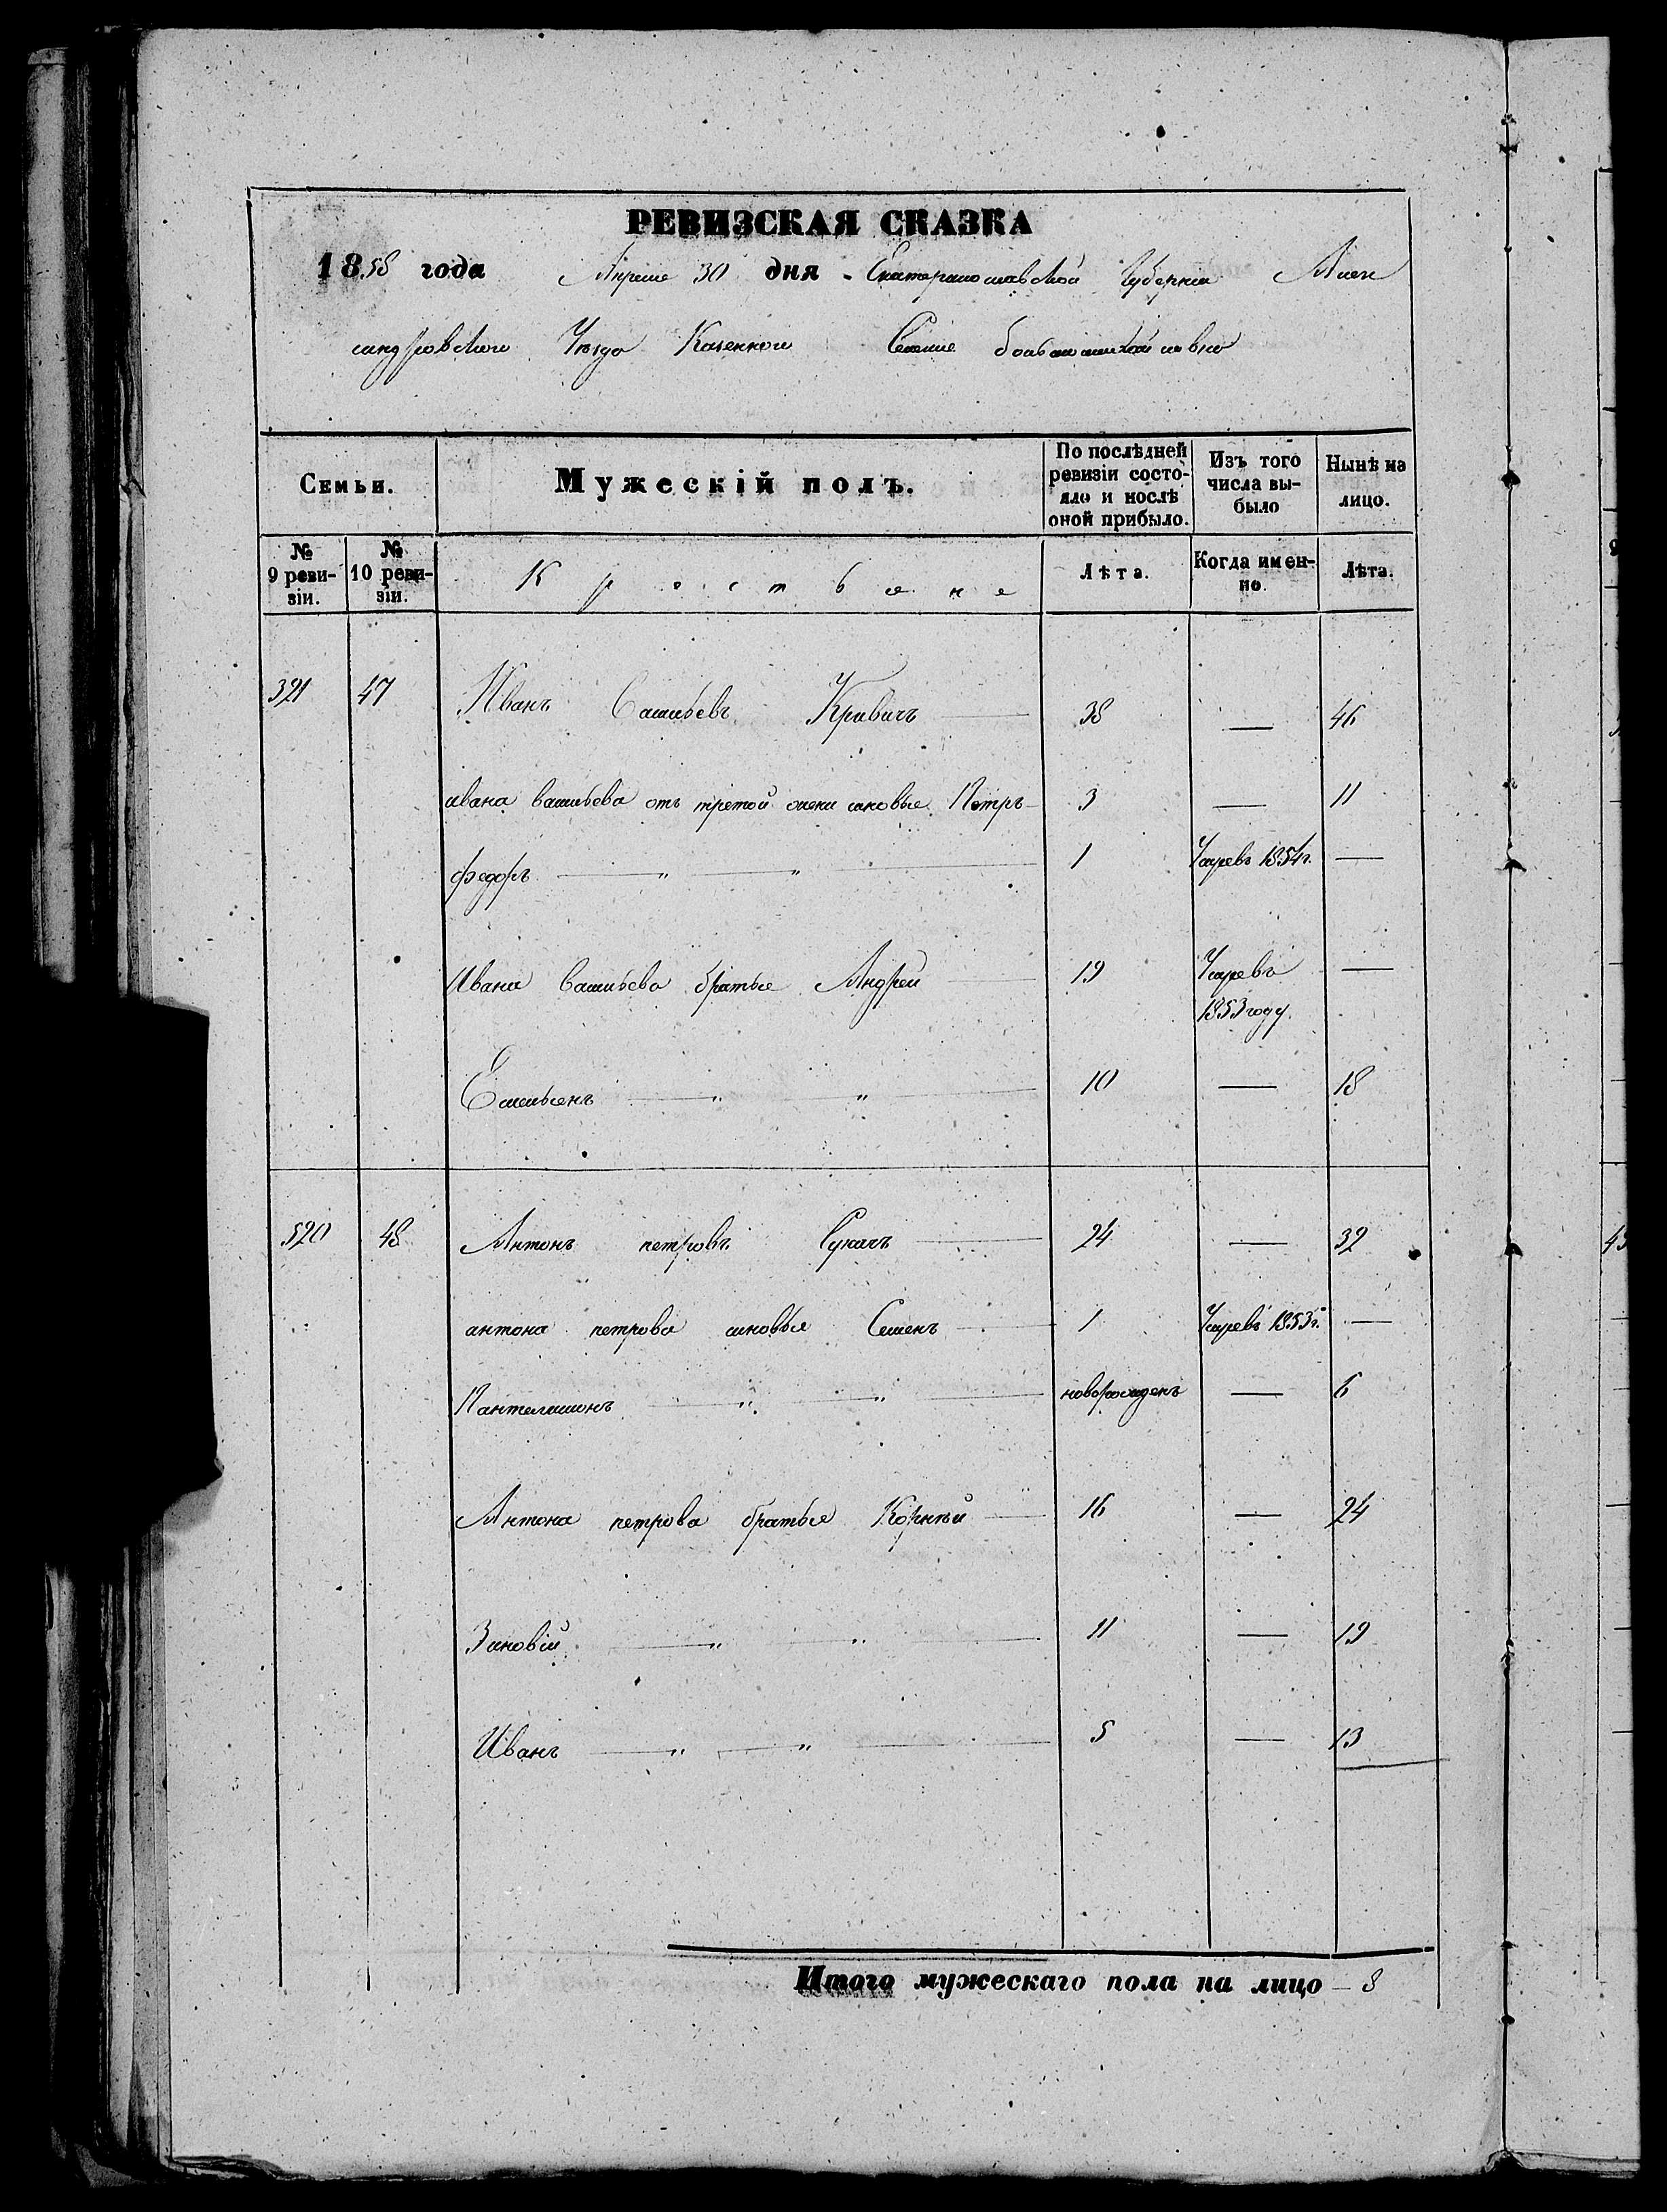 РЕВИЗСКАЯ СКАЗКА
1858 года Апреля 30 дня Екатеринославской Губернии Алек
сандровского Уезда Казенного Селения
Семьи. Мужескій полъ. По послѣдней ревизіи состо-яло и послѣ оной прибыло. Изъ того числа вы-было Нынѣ на лицо.
№ 9 реви-зіи. № 10 реви-зіи. Крестьяне Лѣта. Когда имен-но. Лѣта.
321 47 Иванъ Васильевъ Кривичъ 38 — 46
ивана васильева отъ третой жени сыновья Петръ 3 — 11
федоръ — " — " — 1 Умревъ 1854 г. —
Ивана Васильева братья Андрей 19 Умревъ 1853 году. —
Емельенъ — " — " — 10 — 18
520 48 Антонъ петровъ Сукачъ 24 — 32
антона петрова сыновья Семенъ 1 Умревъ 1853 г. —
Пантелимонъ — " — " — новорожденъ — 6
Антона петрова братья Корнѣй 16 — 24
Зиновій — " — " — 11 — 19
Иванъ — " — " — 5 — 13
Итого мужескаго пола на лицо — 8